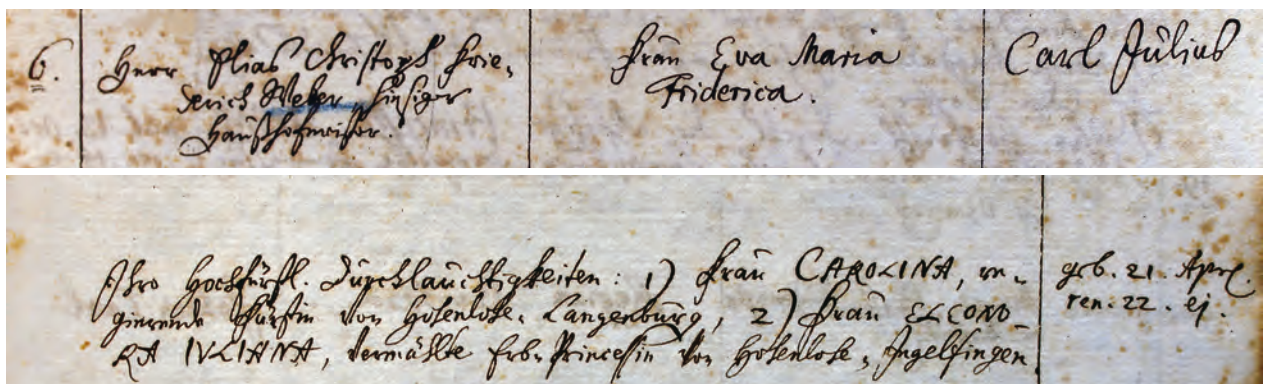 6.
Herr Elias Christoph Frie-
derich Weber, hiesiger
Haußhofmeister.
Frau Eva Maria
Friderica.
Carl Julius
Ihro Hochfürstl. Durchlauchtigkeiten: 1) Frau CAROLINA, re-
gierende Fürstin von Hohenlohe-Langenburg, 2) Frau ELEONO-
RA IVLIANA, vermählte Erb-Princeßin von Hohenlohe-Ingelfingen
geb. 21. Apr.
ren. 22. ej.